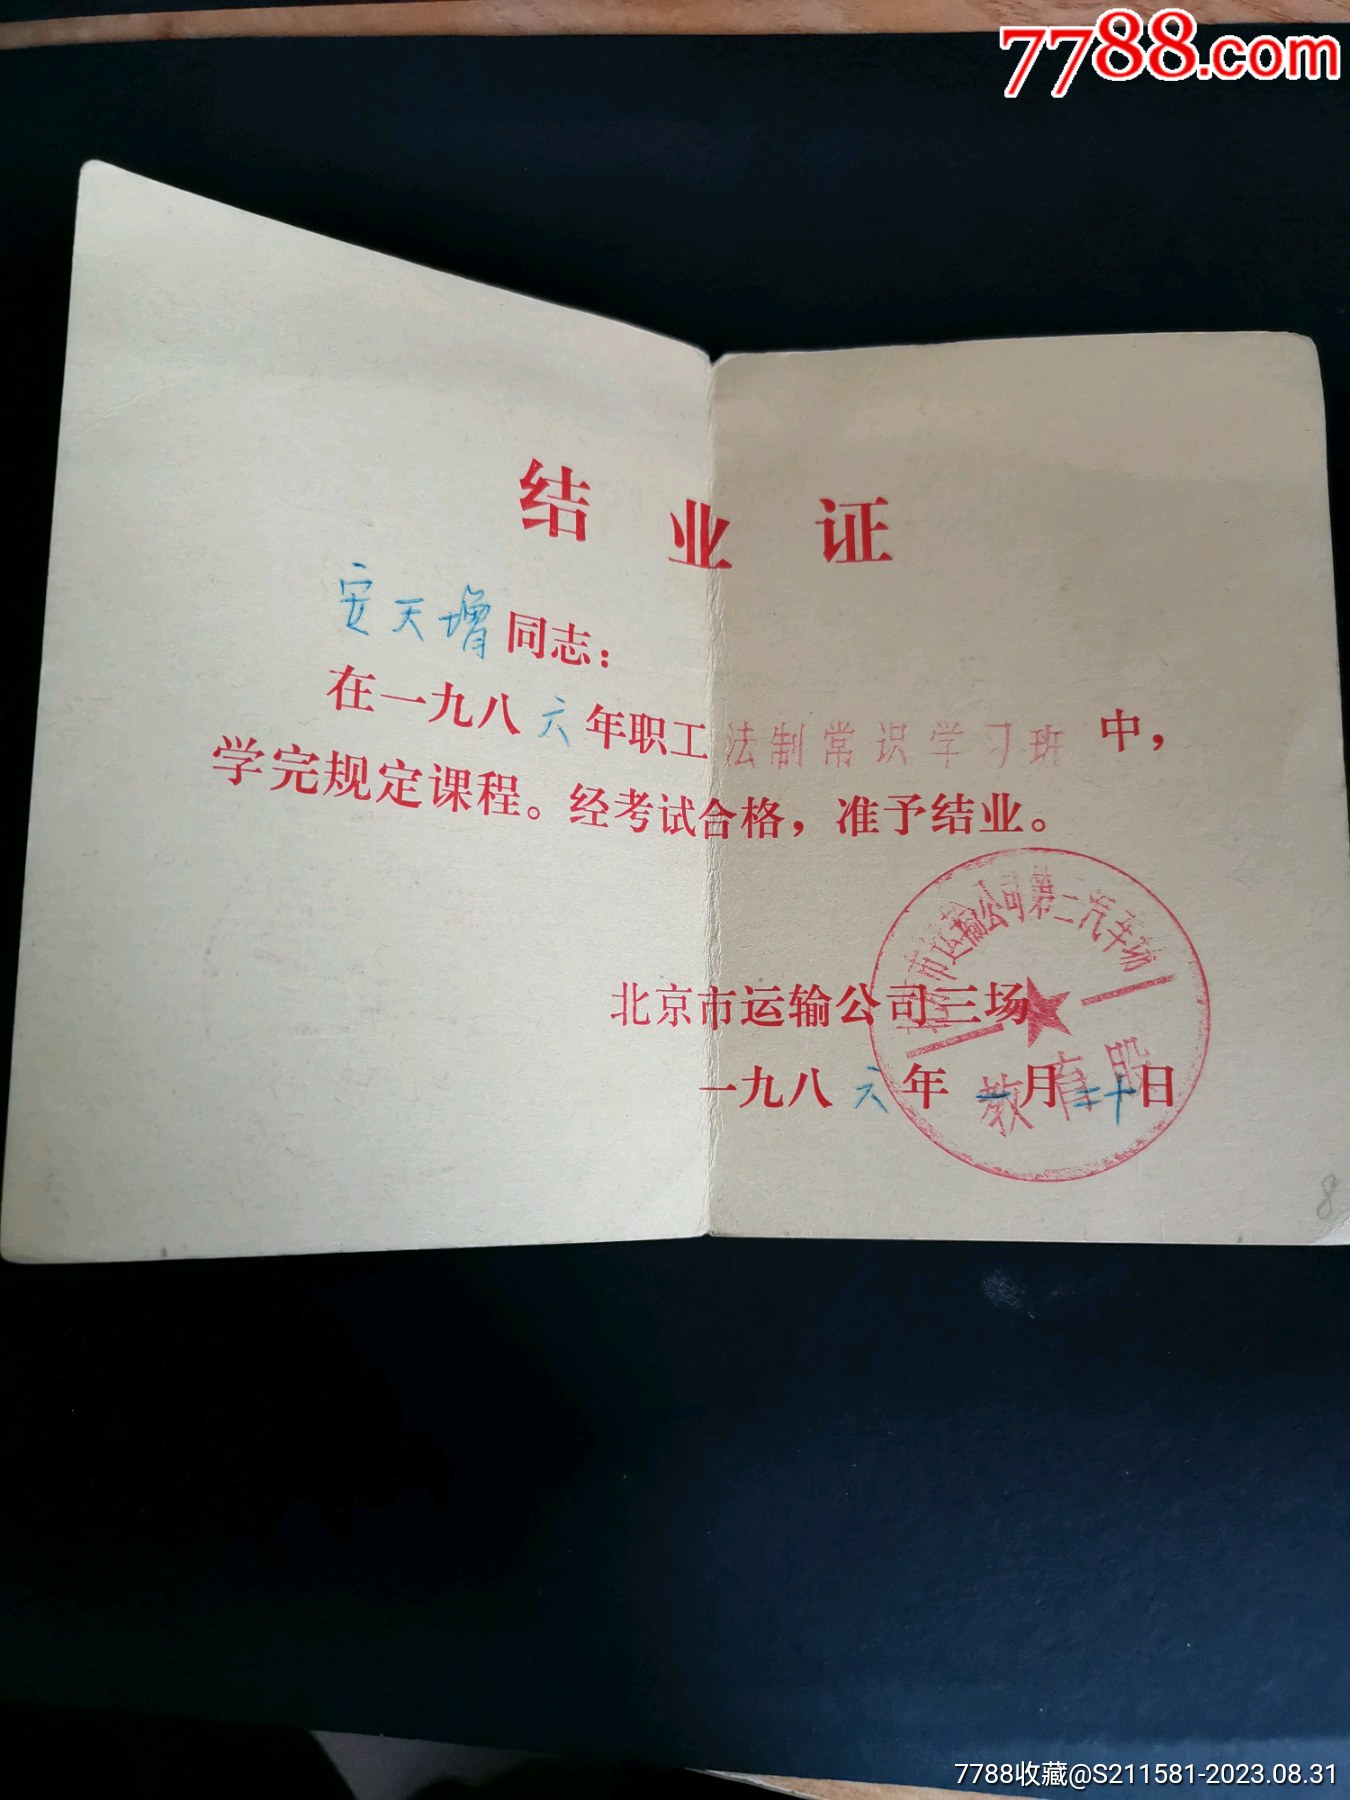 7788.com
结业证
安天增同志：
在一九八六年职工法制常识学习班中，
学完规定课程。经考试合格，准予结业。
市运输公司第三汽车场
北京市运输公司三场
一九八六年一月二十日
教育股
8
7788收藏@S211581-2023.08.31